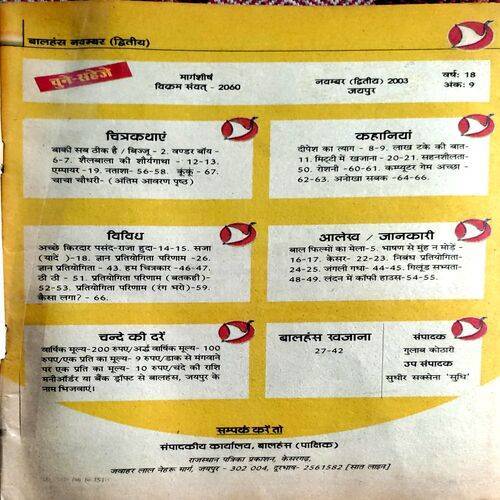 बालहंस नवम्बर (द्वितीय)
चुनें-सहेजें
मार्गशीर्ष
विक्रम संवत् - 2060
नवम्बर (द्वितीय) 2003
जयपुर
वर्ष: 18
अंक: 9
चित्रकथाएं
बाकी सब ठीक है / बिज्जू - 2. वण्डर बॉय -
6-7. शैलबाला की शौर्यगाथा - 12-13.
एम्पायर - 19. नताशा - 56-58. कूंकूं - 67.
चाचा चौधरी- (अंतिम आवरण पृष्ठ)
कहानियां
दीपेश का त्याग - 8-9. लाख टके की बात-
11. मिट्टी में खजाना - 20-21. सहनशीलता-
50. रोशनी -60-61. कम्प्यूटर गेम अच्छा -
62-63. अनोखा सबक -64-66.
विविध
अच्छे किरदार पसंद-राजा हुदा-14-15. सजा
(यादें )-18. ज्ञान प्रतियोगिता परिणाम -26.
ज्ञान प्रतियोगिता - 43. हम चित्रकार -46-47.
ठी ठी - 51. प्रतियोगिता परिणाम (बतकही)-
52-53. प्रतियोगिता परिणाम (रंग भरो)-59.
कैसा लगा? - 66.
आलेख / जानकारी
बाल फिल्मों का मेला-5. भाषण से मुंह न मोड़े -
16-17. केसर - 22-23. निबंध प्रतियोगिता-
24-25. जंगली गधा -44-45. गिलूंड सभ्यता-
48-49. लंदन में कॉफी हाउस-54-55.
चन्दे की दरें
वार्षिक मूल्य-200 रुपए/अर्द्ध वार्षिक मूल्य- 100
रुपए/एक प्रति का मूल्य- 9 रुपए/डाक से मंगवाने
पर एक प्रति का मूल्य- 10 रुपए/चंदे की राशि
मनीऑर्डर या बैंक ड्रॉफ्ट से बालहंस, जयपुर के
नाम भिजवाएं।
बालहंस खजाना
27-42
संपादक
गुलाब कोठारी
उप संपादक
सुधीर सक्सेना 'सुधि'
सम्पर्क करें तो
संपादकीय कार्यालय, बालहंस (पाक्षिक)
राजस्थान पत्रिका प्रकाशन, केसरगढ़,
जवाहर लाल नेहरू मार्ग, जयपुर - 302 004, दूरभाष- 2561582 [सात लाइन]